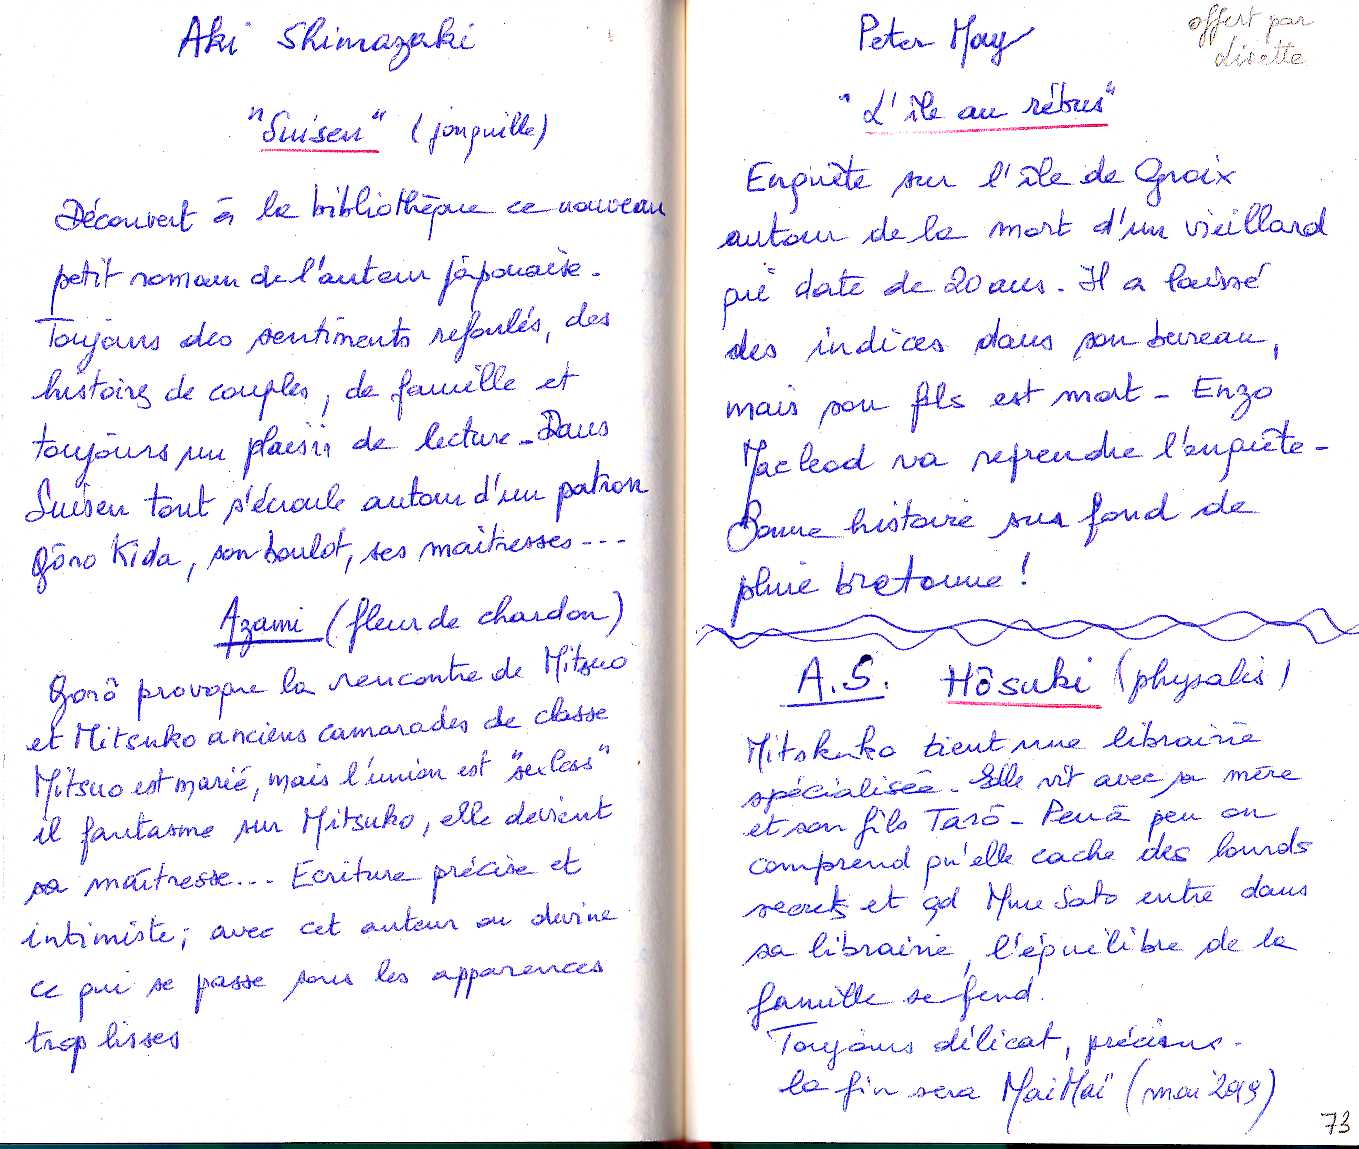 Aki Shimazaki
"Suisen" (jonquille)
Découvert à la bibliothèque ce nouveau
petit roman de l'auteur japonaise.
Toujours des sentiments refoulés, des
histoires de couples, de famille et
toujours un plaisir de lecture - Dans
Suisen tout s'écroule autour d'un patron
Gôro Kida, son boulot, ses maîtresses ---
Azami (fleur de chardon)
Gorô provoque la rencontre de Mitsuo
et Mitsuko anciens camarades de classe
Mitsuo est marié, mais l'union est "sexless"
il fantasme sur Mitsuko, elle devient
sa maîtresse... Ecriture précise et
intimiste; avec cet auteur on devine
ce qui se passe sous les apparences
trop lisses
Peter May
offert par
Lisette
"L'île au rébus"
Enquête sur l'île de Groix
autour de la mort d'un vieillard
qui date de 20 ans. Il a laissé
des indices dans son bureau,
mais son fils est mort - Enzo
Macleod va reprendre l'enquête -
Bonne histoire sur fond de
pluie bretonne !
A.S. Hôsuki (physalis)
Mitskuko tient une librairie
spécialisée. Elle vit avec sa mère
et son fils Tarô - Peu à peu on
comprend qu'elle cache des lourds
secrets et qd Mme Sato entre dans
sa librairie, l'équilibre de la
famille se fend.
Toujours délicat, précieux.
la fin sera MaïMaï (mai 2019)
73